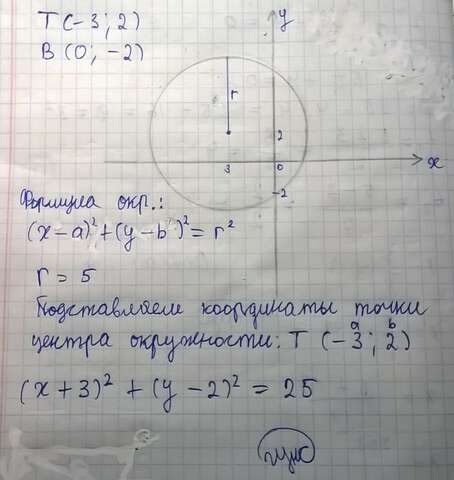 T (-3; 2)
B (0; -2)
y
r
2
3
0
x
-2
Формула окр.:
(x-a)²+(y-b)²= r²
r = 5
Подставляем координаты точки
a b
центра окружности: T (-3; 2)
(x+3)² + (y-2)² = 25